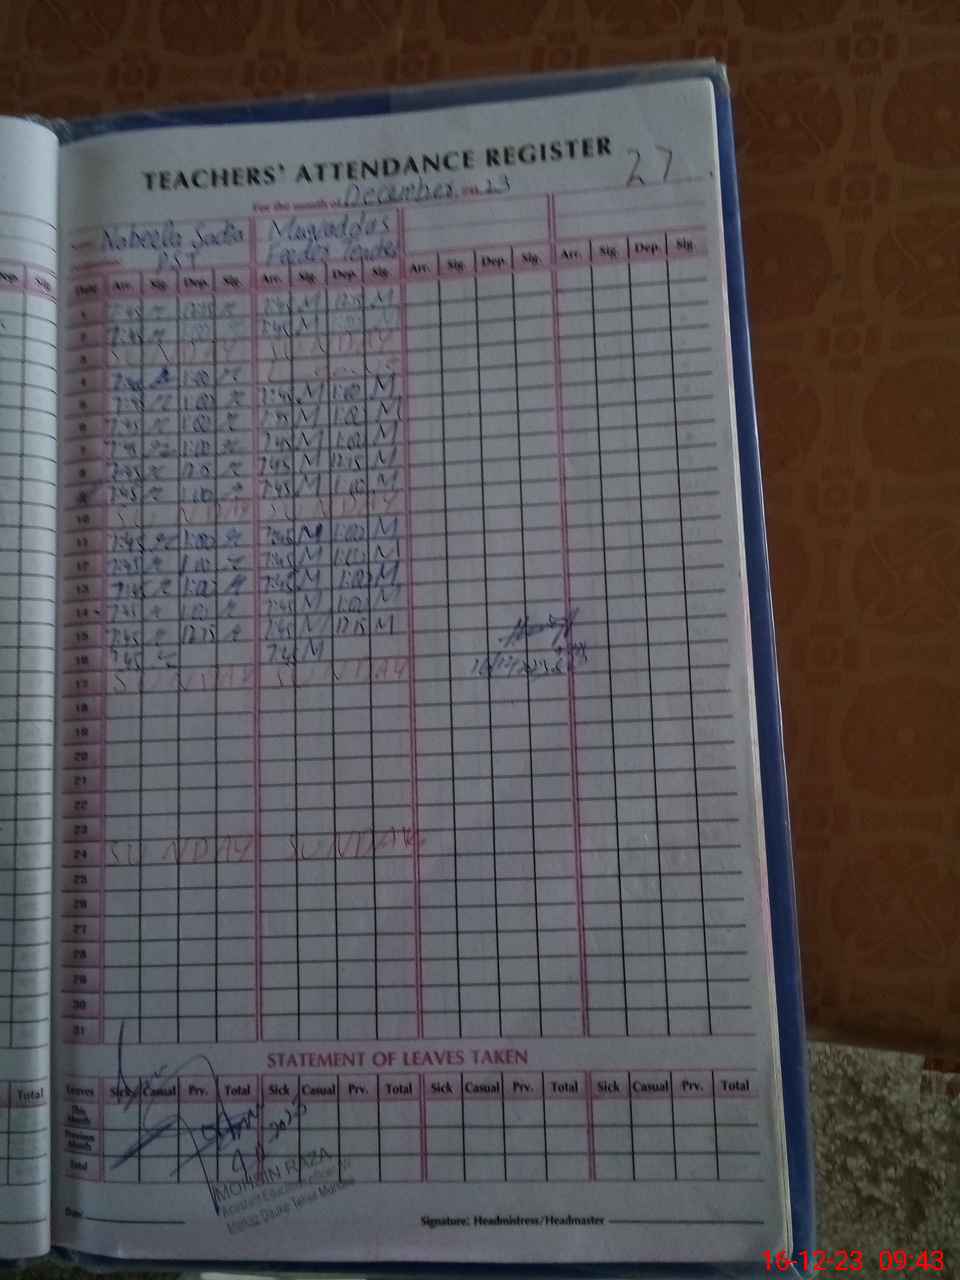 TEACHERS' ATTENDANCE REGISTER 27
For the month of December 23
Nabeela Sadia Muqaddas
PST Feeder Teacher
Date Arr. Sig. Dep. Sig. Arr. Sig. Dep. Sig. Arr. Sig. Dep. Sig. Arr. Sig. Dep. Sig.
1 7:45 12:15 7:45 M 12:15 M
2 7:45 1:00 7:45 M
3 SUNDAY SUNDAY
4 1:00
5 7:45 1:00 7:45 M 1:00 M
6 7:45 1:00 7:45 M 1:00 M
7 7:45 1:00 7:45 M 1:00 M
8 7:45 7:45 M 12:15 M
7:45 1:00 7:45 M 1:00 M
10 SUNDAY SUNDAY
11 7:45 1:00 7:45 M 1:00 M
12 7:45 1:00 7:45 M 1:00 M
13 7:45 1:00 7:45 M 1:00 M
14 7:45 1:00 7:45 M 1:00 M
15 7:45 12:15 7:45 M 12:15 M
16 7:45 7:45 M
17 SUNDAY SUNDAY
18
19
20
21
22
23
24 SUNDAY SUNDAY
25
26
27
28
29
30
31
STATEMENT OF LEAVES TAKEN
Leaves Sick Casual Prv. Total Sick Casual Prv. Total Sick Casual Prv. Total Sick Casual Prv. Total
This Month
Previous Month
Total
MOHSIN RAZA
Assistant Education Officer
Date
Signature: Headmistress/Headmaster
Dep. Sig.
Total
16-12-23 09:43